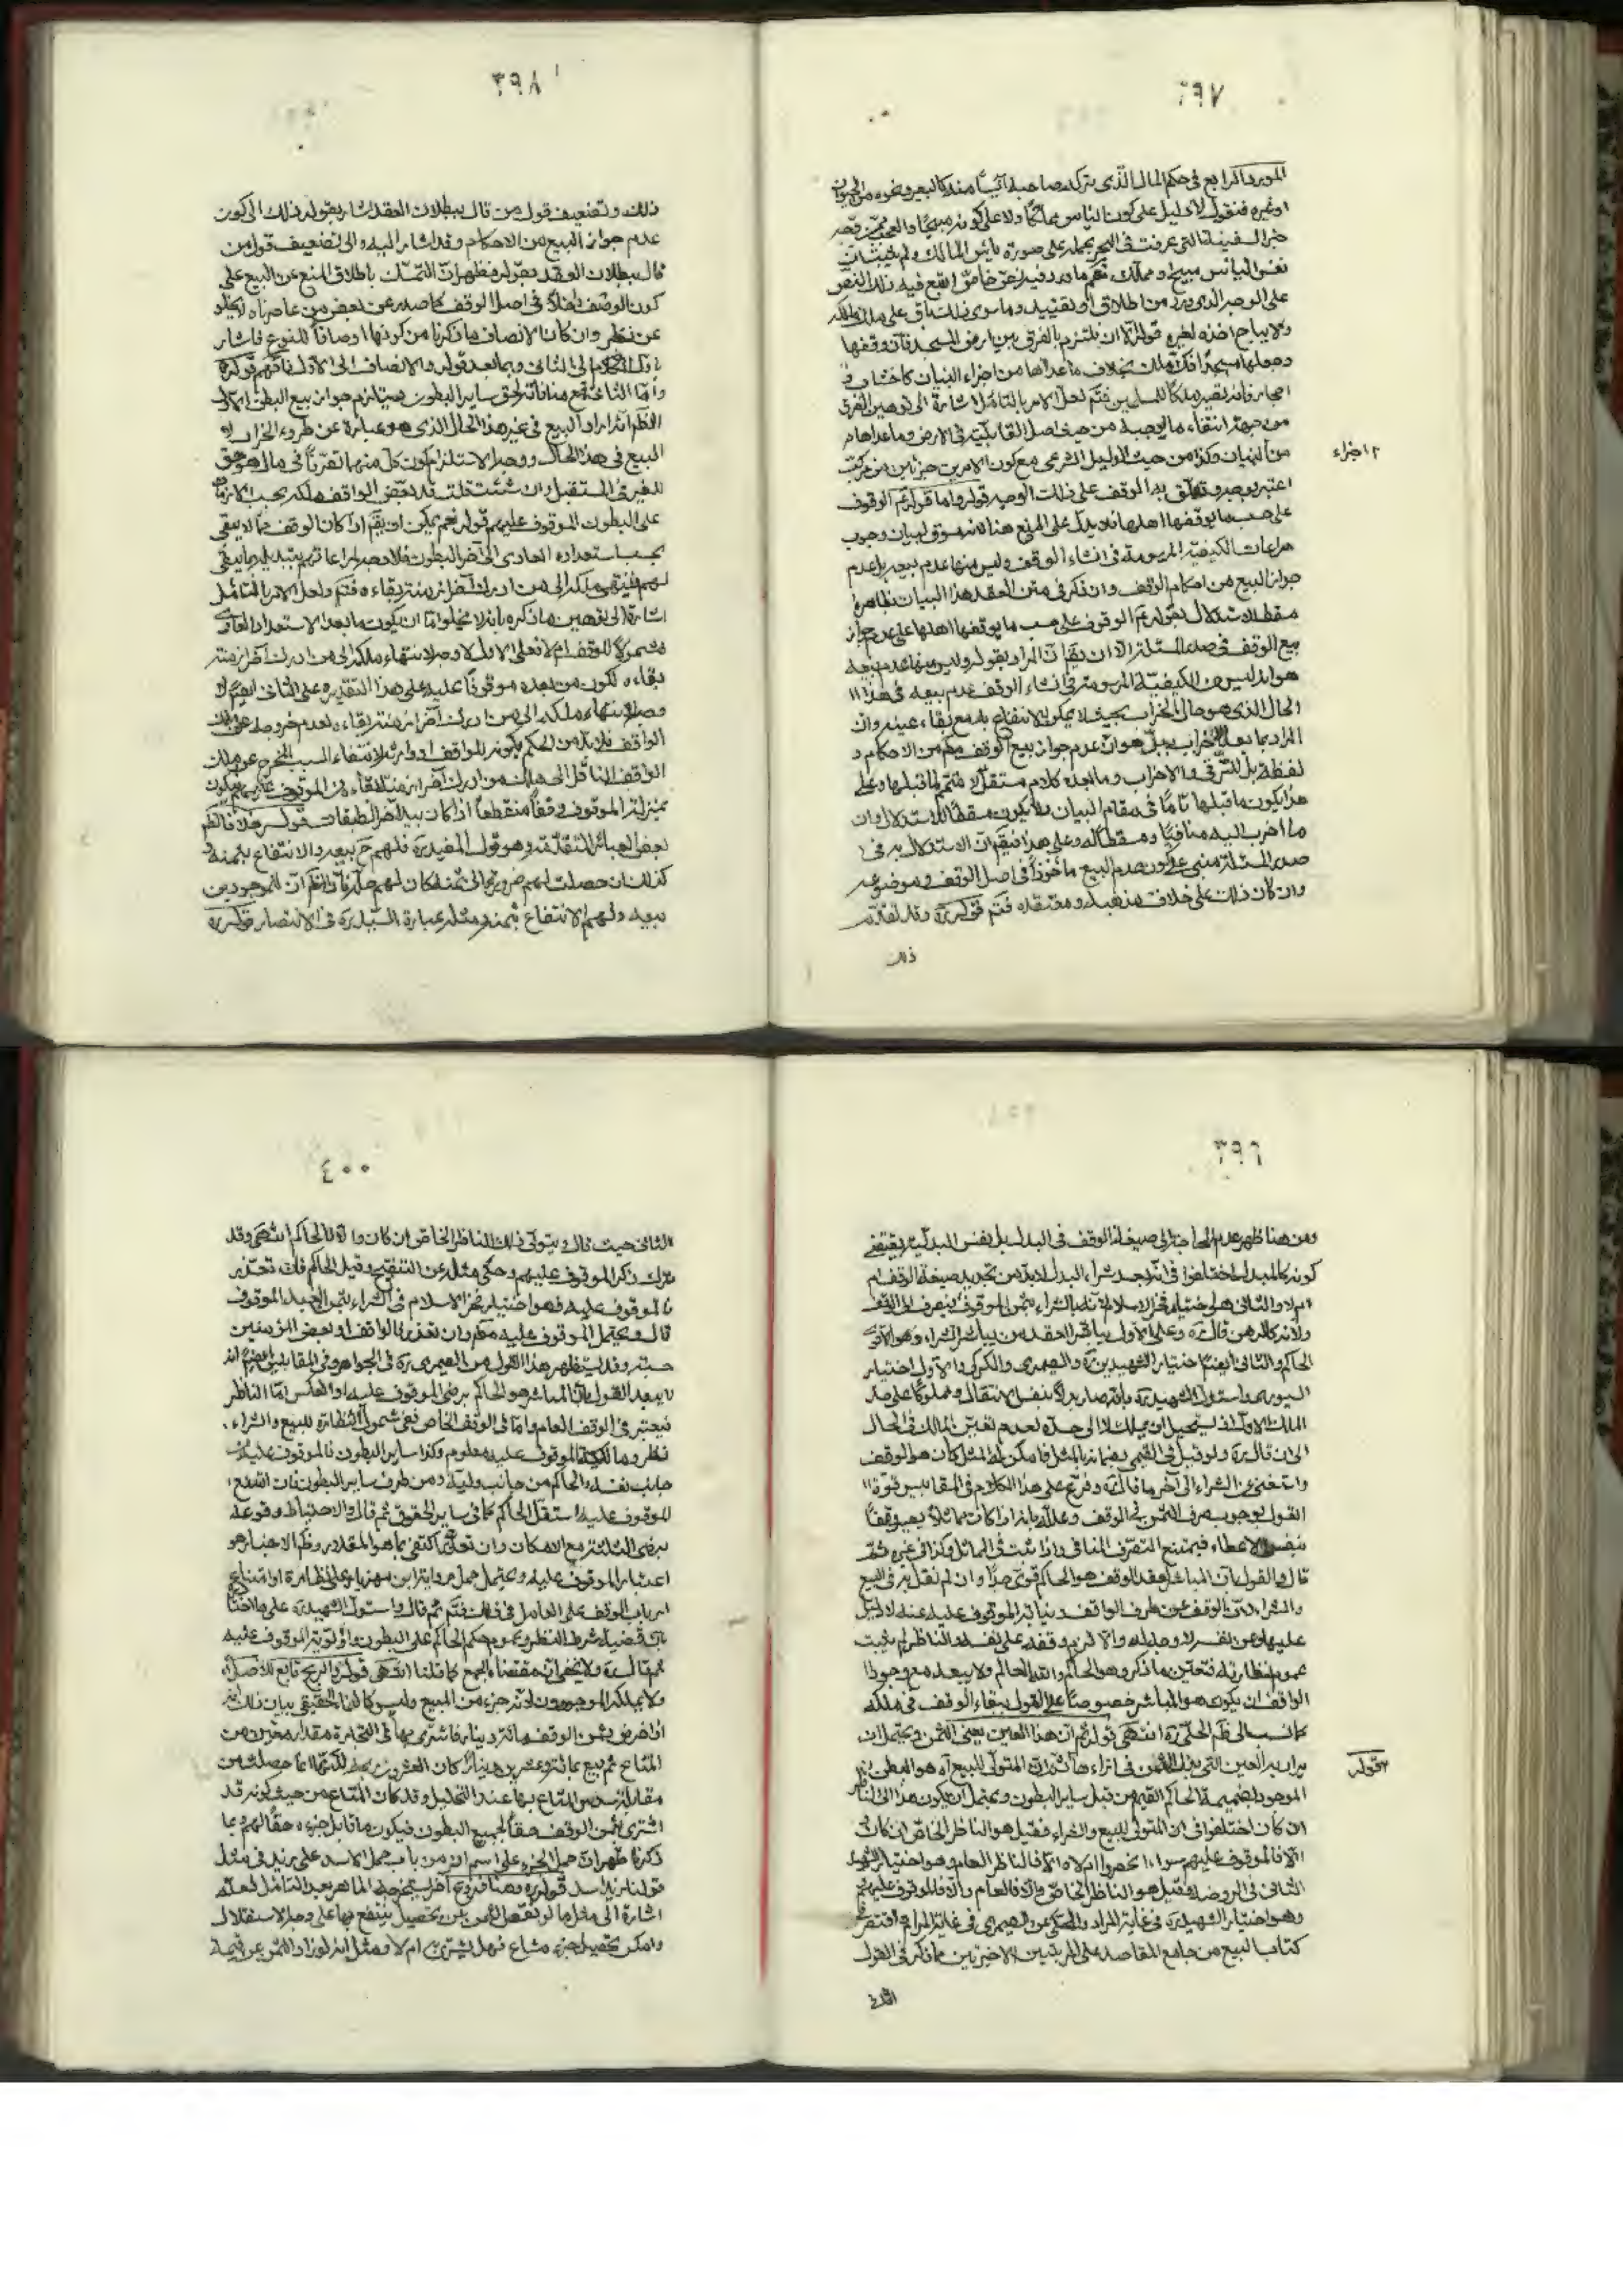 ٣٩٧
المورد الرابع في حكم المال الذي يتركه صاحبه آئساً منه كالبعير ونحوه من الحيوان
او غيره فنقول لا دليل على كون الياس مملكاً ولا على كونه مبيحاً
خبر السفينة التي غرقت في البحر يحمله على صورة يأس المالك ولم يثبت ان
نفس الياس مبيح ومملك نعم ما ورد فيه نص خاص اتبع فيه ذلك النص
على الوجه الذي ورد من اطلاق او تقييد وما سوى ذلك باق على ملك مالكه
ولا يباح اخذه لغيره قوله الا ان يلتزم بالفرق بين ارض المسجد فان وقفها
وجعلها مسجداً فك ملك بخلاف ما عداها من اجزاء البنيان كاخشابه
احجاره فانه يصير ملكاً للمسلمين فتم لعل الامر بالتامل اشارة الى توهين الفرق
من جهة انتفاء ما يوجبه من حيث اصل القابلية في الارض وما عداها
اجزاء
من البنيان وكذا من حيث الدليل الشرعي مع كون الامرين جزئين من مركب
على ذلك الوجه قوله واما قوله ع الوقوف
على حسب ما يوقفها اهلها فلا يدل على المنع هنا لانه مسوق لبيان وجوب
مراعات الكيفية المرسومة في انشاء الوقف وليس منها عدم بيعه بل عدم
جواز البيع من احكام الوقف وان ذكر في متن العقد هذا البيان ظاهره
سقط الاستدلال بقوله ع الوقوف على حسب ما يوقفها اهلها على عدم جواز
بيع الوقف في صدر المسئلة الا ان يقال ان المراد بقوله وليس منها عدم بيعه
هو انه ليس من الكيفية المرسومة في انشاء الوقف عدم بيعه في هذا
الحال الذي هو حال الخراب بحيث لا يمكن الانتفاع به مع بقاء عينه وان
المراد بما بعد الاضراب ببل هو ان عدم جواز بيع الوقف حكم من الاحكام و
لفظة بل للترقي والاضراب وما بعده كلام مستقل لا متمم لما قبلها وعلى
هذا يكون ما قبلها تاماً في مقام البيان ولا يكون مسقطاً للاستدلال وان
ما اضرب اليه منافياً ومسقطاً له وعلى هذا فيقال ان الاستدلال به في
صدر المسئلة مبني على كون عدم البيع ماخوذاً في اصل الوقف وموضوعه
وان كان ذلك على خلاف مذهبه ومعتقده فتم قوله ره وقد تقدم
ذلك
٣٩٨
ذلك وتضعيف قول من قال ببطلان العقد اشار بقوله ذلك الى كون
عدم جواز البيع من الاحكام وقد اشار اليه والى تضعيف قول من
قال ببطلان العقد بقوله فظهر ان التمسك باطلاق المنع عن البيع على
كون الوصف داخلاً في اصل الوقف كما صدر عن بعض من عاصرناه لا يخلو
عن نظر وان كان الانصاف ما ذكرنا من كونها اوصافاً للنوع فاشار
الى الثاني وبما بعد قوله والانصاف الى الاول فافهم قوله ره
واما الثاني فمع منافاته لحق ساير البطون يستلزم جواز بيع البطن الاول
الظاهر انه اراد البيع في غير هذا الحال الذي هو عبارة عن طروء الخراب لا
البيع في هذا الحال ووجه الاستلزام كون كل منهما تصرفاً في ما هو حق
للغير في المستقبل وان شئت قلت
على البطون الموقوف عليهم قوله نعم يمكن ان يقال اذا كان الوقف مما لا يبقى
بحسب استعداده العادي الى آخر البطون فلا وجه لمراعاتهم بتبديله بما يبقى
لهم فينتهي ملكه الى من ادرك آخر ازمنة بقاءه فتم ولعل الامر بالتامل
اشارة الى توهين ما ذكره بانه لا يخلو اما ان يكون ما بعد الاستعداد العادي
مشمولاً للوقف ام لا فعلى الاول لا وجه لانتهاء ملكه الى من ادرك آخر ازمنة
بقاءه لكون من بعده موقوفاً عليه على هذا التقدير وعلى الثاني ايضاً لا
وجه لانتهاء ملكه الى من ادرك آخر ازمنة بقاءه لعدم خروجه عن ملك
الواقف فلا بد من الحكم بكونه للواقف او وارثه لانتفاء السبب المخرج عن ملك
الواقف الناقل الى ملك من ادرك آخر ازمنة بقاءه من الموقوف عليهم فيكون
بمنزلة الموقوف وقفاً منقطعاً اذا كان بيد آخر الطبقات
بعض العبائر المتقدمة وهو قول المفيد ره فلهم ح بيعه والانتفاع بثمنه و
كذلك ان حصلت لهم ضرورة الى ثمنه كان لهم حله فان الظاهر ان للموجودين
بيعه ولهم الانتفاع بثمنه ومثله عبارة السيد ره في الانتصار قوله ره
٣٩٦
ومن هنا ظهر عدم الحاجة الى صيغة الوقف في البدل بل نفس البدلية يقتضي
كونه كالمبدل اختلفوا في انه بعد شراء البدل لابد من تجديد صيغة الوقف ام
ام لا والثاني هل اختيار فخر الاسلام لانه بالشراء بثمن الموقوف ينصرف الى الوقف
ولانه كالرهن قال ره وعلى الاول يباشر العقد من يباشر الشراء وهو الاقوى
الحاكم والثاني ايضاً اختيار الشهيدين ره والصيمري والكركي والاول اختيار
السيوري واستدل الشهيد ره بانه صار بدلاً بنفس الانتقال ومملوكاً على حد
الملك الاول اذ يستحيل ان يملك لا الى حده لعدم تعين المالك في الحال
الى ان قال ره ولو قيل في القيمي بضمانه بالمثل فامكن له المثل كان هو الوقف
واستغنى عن الشراء الى آخر ما قاله ره وفرع على هذا الكلام في المقابيس قوة
القول بوجوب صرف الثمن في الوقف وعلله بانه اذا كان مماثلاً يصير وقفاً
بنفس الاعطاء فيمتنع التصرف المنافي واذا ثبت في المماثل وكذا في غيره ثم
قال والقول بان المباشر لعقد الوقف هو الحاكم قوى جداً وان لم نقل به في البيع
والشراء لان الوقف عن طرف الواقف ونيابة الموقوف عليه عنه لا دليل
عليها وعن الفسراك وحده له والا لزم وقفه على نفسه والناظر لم يثبت
عموم نظارته فتعين ما ذكر وهو الحاكم والله العالم ولا يبعد مع وجود
الواقف ان يكون هو المباشر خصوصاً على القول ببقاء الوقف في ملكه
كما نسب الى ظاهر الحلي ره انتهى قوله ثم ان هذا العين يعني الثمن ويحتمل ان
قوله
يراد به العين التي بذل الثمن في ازاءها ثم ان المتولي للبيع آه هو البطن
الموجود بضميمة الحاكم القيم من قبل ساير البطون ويحتمل ان يكون هذا الى الناظر
ان كان اختلفوا في ان المتولي للبيع والشراء فقيل هو الناظر الخاص ان كان
والا فالموقوف عليهم سواء انحصروا ام لا والا فالناظر العام وهو اختيار الشهيد
الثاني في الروضة وقيل هو الناظر الخاص والا فالعام والا فالموقوف عليهم
وهو اختيار الشهيد ره في غاية المراد والمحكي عن الصيمري في غاية المرام واقتصر في
كتاب البيع من جامع المقاصد على المرتبتين الاخيرتين مما ذكر في القول
الثاني
٤٠٠
الثاني حيث قال ويتولى ذلك الناظر الخاص ان كان والا فالحاكم انتهى وقد
ترك ذكر الموقوف عليهم وحكى مثله عن التنقيح وقيل الحاكم فان تعذر
فالموقوف عليه وهو اختيار فخر الاسلام في الشراء بثمن العبد الموقوف
قال ويحتمل الموقوف عليه مطلقاً وان تعذر فالواقف او بعض المؤمنين
حسبة وقد استظهر هذا القول من الصيمري ره في الجواهر وفي المقابيس
لا يبعد القول بان المباشر هو الحاكم برضى الموقوف عليه او العكس اما الناظر
فيعتبر في الوقف العام واما في الوقف الخاص ففي شمول النظارة للبيع والشراء
نظر وما لكية الموقوف عليه معلوم وكذا ساير البطون فالموقوف عليه من
جانب نفسه والحاكم من جانب وليه ومن طرف ساير البطون فان امتنع
الموقوف عليه استقل الحاكم كما في ساير الحقوق ثم قال والاحتياط وقوعه
برضى الثلثة مع الامكان وان تعذر اكتفى بما هو المقدور وظاهر الاخبار هو
اعتبار الموقوف عليه ويحتمل حمل رواية ابن مهزيار على نظارة او امتناع
ارباب الوقف على العامل في ذلك فتم ثم قال واستدل الشهيد ره على ما اختاره
بان قضية شرط النظر وعموم حكم الحاكم على البطون واولوية الموقوف عليه
ثم قال ره ولا يخفى ان مقتضاه الجمع كما قلنا انتهى قوله والربح تابع للاصل
ولا يملكه الموجودون لانه جزء من المبيع وليس كالنماء الحقيقي بيان ذلك انه
اذا فرض ثمن الوقف مائة دينار فاشترى بها في التجارة مقدار معين من
المتاع ثم بيع بمائة وعشرين ديناراً كان العشرون ربحاً لكنها انما حصلت من
مقابلة سدس المتاع بها عند التحليل وقد كان المتاع من حيث كونه قد
اشترى بثمن الوقف حقاً لجميع البطون فيكون ما قابل جزءه حقاً لهم وبما
ذكرنا ظهر ان حمل الجزء على اسم ان من باب حمل الاسد على زيد في مثل
قولنا زيد اسد قوله ره وهنا فروع آخر يستخرجها الماهر بعد التامل لعله
اشارة الى مثل ما لو نقص الثمن عن تحصيل ما ينتفع بها على وجه الاستقلال
وامكن تحصيل جزء مشاع فهل يشترى به ام لا ومثل انه لو زاد الثمن عن قيمة